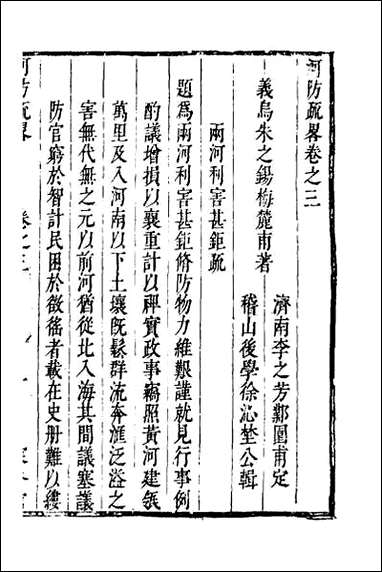 河防疏畧卷之三
濟南李之芳鄴園甫定
義烏朱之錫梅麓甫著
稽山後學徐沁埜公輯
兩河利害甚鉅疏
題爲兩河利害甚鉅脩防物力維艱謹就見行事例
酌議增損以襄重計以裨實政事竊照黃河建瓴
萬里及入河南以下土壤旣鬆群流奔滙泛溢之
害無代無之元以前河猶從北入海其間議塞議
防官窮於智計民困於徵徭者載在史册難以縷
河防疏畧
卷之三